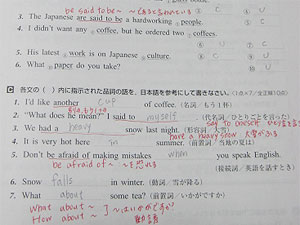 be said to be~ ~であると言われている
3. The Japanese are said to be a hardworking people. C
4. I didn't want any coffee, but he ordered two coffees.
5. His latest work is on Japanese culture.
6. What paper do you take?
C 各文の( )内に指示された品詞の語を、日本語を参考にして書きなさい。
1. I'd like another cup of coffee. (名詞/もう1杯)
2. "What does he mean?" I said to myself. (代名詞/ひとりごとを言った)
say to oneself
3. We had a heavy snow last night. (形容詞/大雪)
have a heavy snow 大雪が
4. It is very hot here in summer. (前置詞/当地の夏は)
5. Don't be afraid of making mistakes when you speak English.
be afraid of~ ~を恐れる (接続詞/英語を話すとき)
6. Snow falls in winter. (動詞/雪が降る)
7. What about some tea? (前置詞/いかがですか)
What about ~
How about ~ ~はいかがですか
動名詞